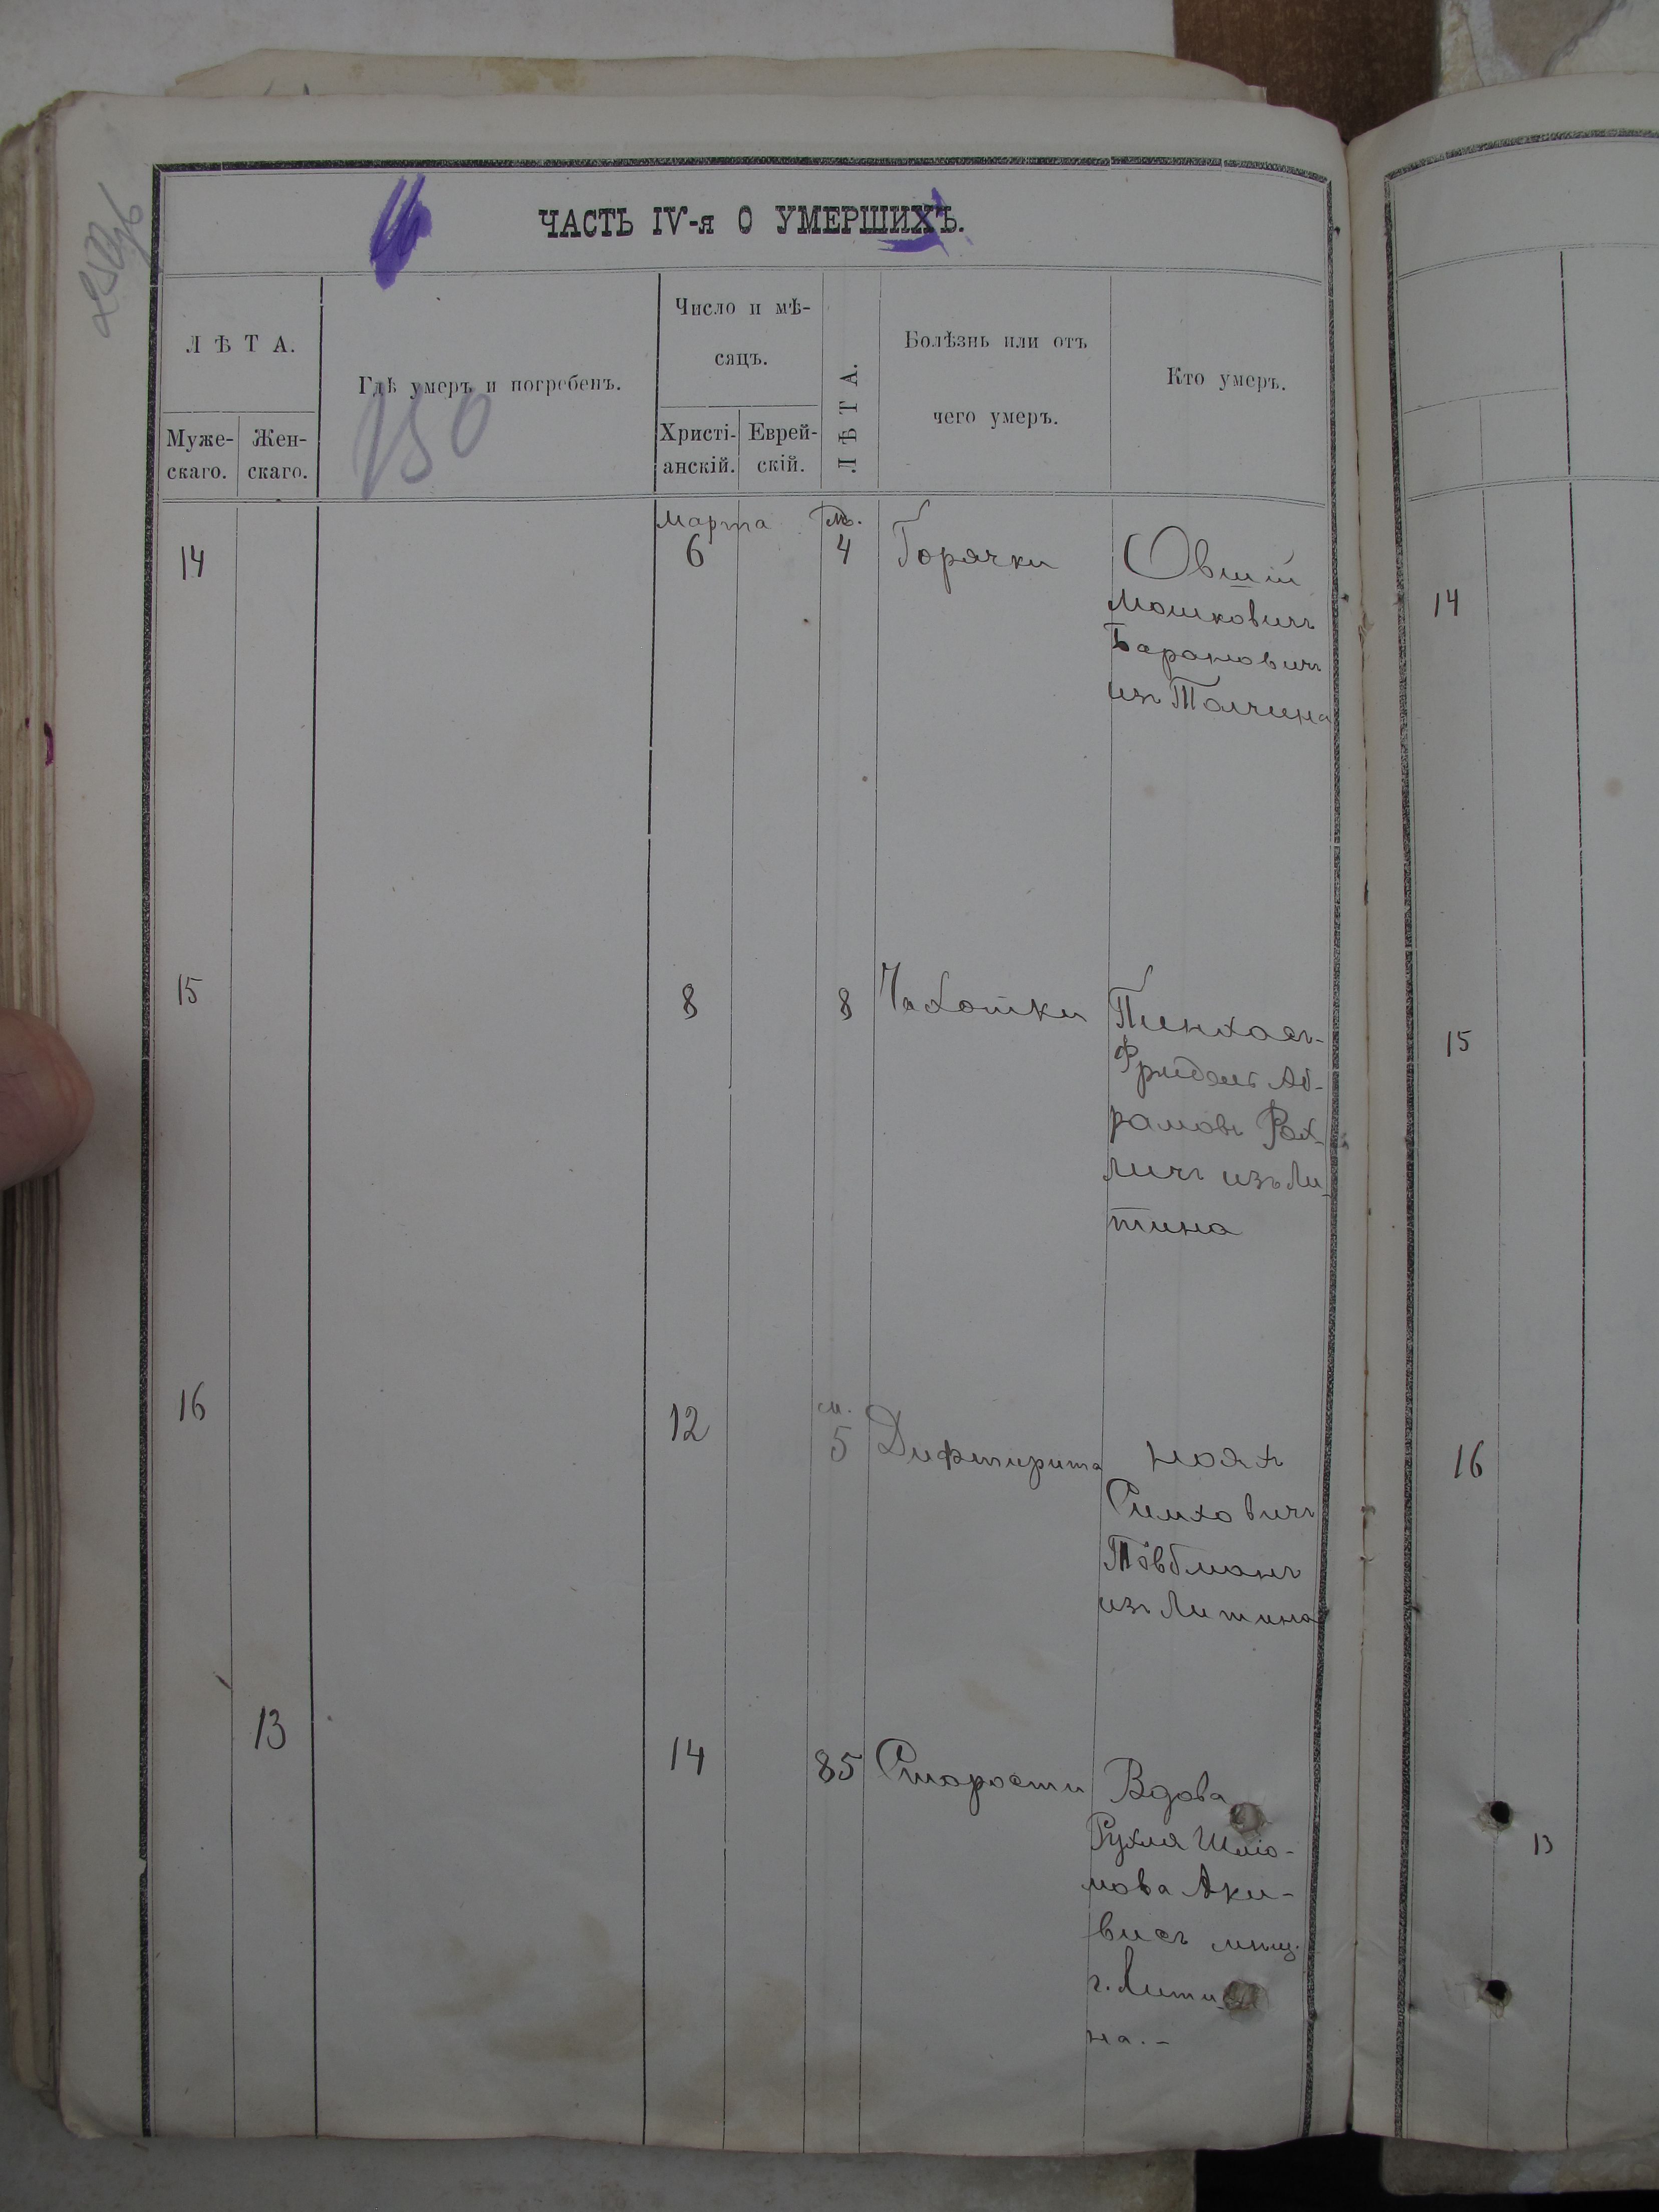 ЧАСТЬ IV-я О УМЕРШИХЪ.
ЛѢТА.
Муже-
скаго.
Жен-
скаго.
Гдѣ умеръ и погребенъ.
150
Число и мѣ-
сяцъ.
Христі-
анскій.
Еврей-
скій.
ЛѢТА.
Болѣзнь или отъ
чего умеръ.
Кто умеръ.
марта
14 6 4 Горячки Овшій
Мошковичъ
Барановичъ
изъ
15 8 8 Чахотки Пинхасъ-
Фридель Аб-
рамовъ Рох-
личъ изъ Ли-
тина
м.
16 12 5 Дифтирита Нояхъ
Симховичъ
Товбманъ
изъ Литина
13 14 85 Старости Вдова
Рухля Шліо-
мова Аки-
висъ мѣщ.
г. Лити-
на.-
14
15
16
13